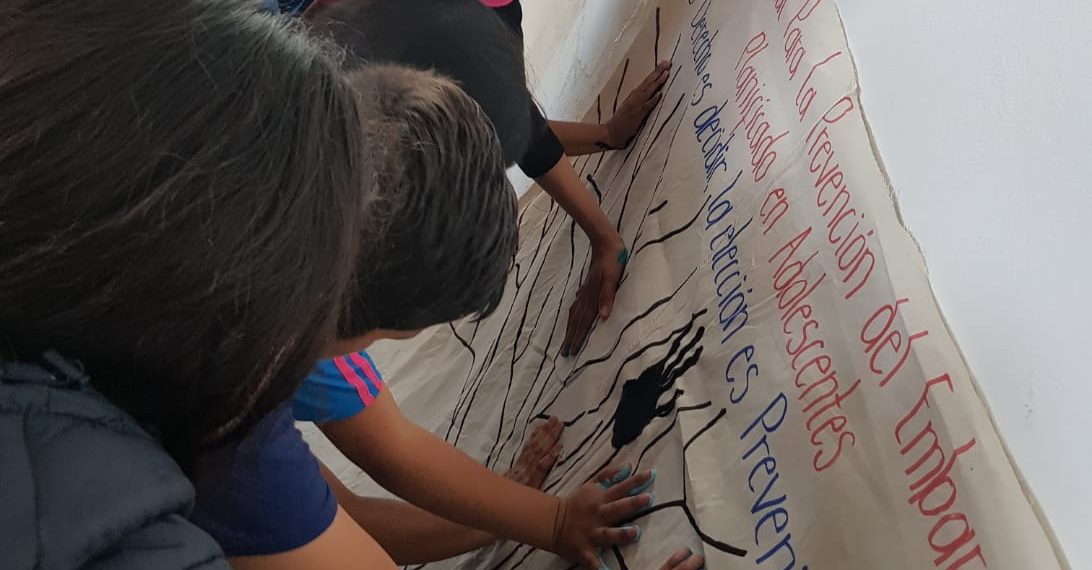 Para la Prevención del Embara
Planificado en Adolescentes
Derecho es decidir, la elección es Preveni